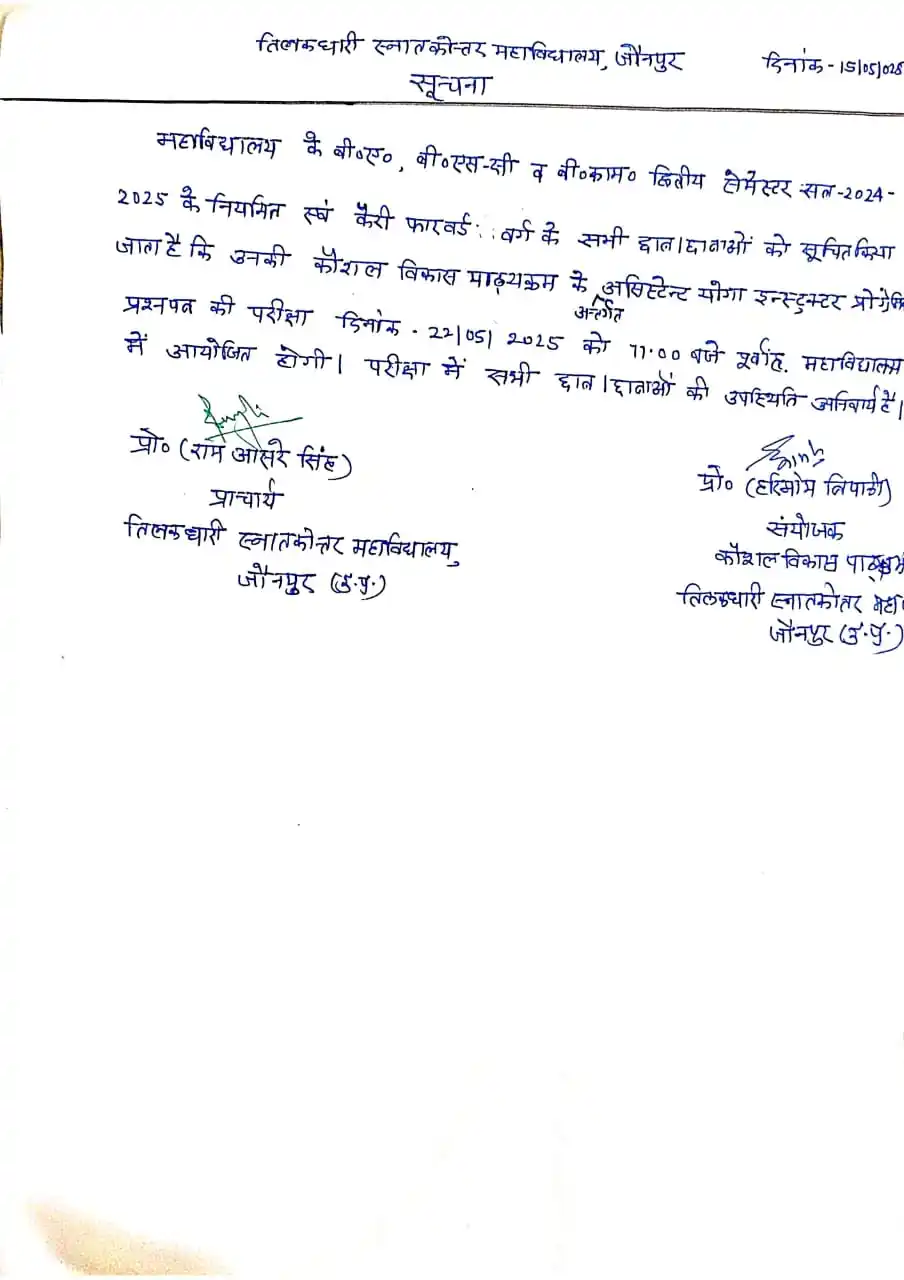 तिलकधारी स्नातकोत्तर महाविद्यालय, जौनपुर
दिनांक-15/05/025
सूचना
महाविद्यालय के बी०ए०, बी०एस-सी व बी०काम० द्वितीय सेमेस्टर सत्र-2024-
2025 के नियमित एवं कैरी फारवर्ड वर्ग के सभी छात्र/छात्राओं को सूचित किया
जाता है कि उनकी कौशल विकास पाठ्यक्रम के अन्तर्गत असिस्टेन्ट योगा इन्स्ट्रक्टर
प्रश्नपत्र की परीक्षा दिनांक - 22/05/2025 को 11.00 बजे पूर्वाह्न महाविद्यालय
में आयोजित होगी। परीक्षा में सभी छात्र/छात्राओं की उपस्थिति अनिवार्य है।
प्रो० (राम आसरे सिंह)
प्राचार्य
तिलकधारी स्नातकोत्तर महाविद्यालय,
जौनपुर (उ.प्र.)
प्रो० (हरिओम त्रिपाठी)
संयोजक
कौशल विकास
तिलकधारी स्नातकोत्तर महा
जौनपुर (उ.प्र.)